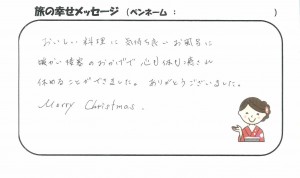 旅の幸せメッセージ （ペンネーム： ）
おいしい料理に 気持ち良いお風呂に
暖かい接客のおかげで 心も体も癒され
休めることができました。ありがとうございました。
Merry Christmas.